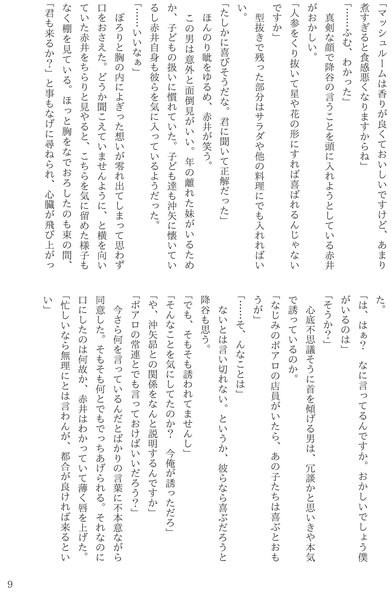 「マッシュルームは香りが良くておいしいですけど、あまり
煮すぎると食感悪くなりますからね」
「……ふむ、わかった」
　真剣な顔で降谷の言うことを頭に入れようとしている赤井
がおかしい。
「人参をくり抜いて星や花の形にすれば喜ばれるんじゃない
ですか」
　型抜きで残った部分はサラダや他の料理にでも入れればい
い。
「たしかに喜びそうだな。君に聞いて正解だった」
　ほんのり眦をゆるめ、赤井が笑う。
　この男は意外と面倒見がいい。年の離れた妹がいるため
か、子どもの扱いに慣れていた。子ども達も沖矢に懐いてい
るし赤井自身も彼らを気に入っているようだった。
「……いいなぁ」
　ぽろりと胸の内によぎった想いが零れ出てしまって思わず
口をおさえた。どうか聞こえていませんように、と横を向い
ていた赤井をちらりと見やると、こちらを気に留めた様子も
なく棚を見ている。ほっと胸をなでおろしたのも束の間、
「君も来るか？」と事もなげに尋ねられ、心臓が飛び上がっ
た。
「は、はぁ？　なに言ってるんですか。おかしいでしょう僕
がいるのは」
「そうか？」
　心底不思議そうに首を傾げる男は、冗談かと思いきや本気
で誘っているのか。
「なじみのポアロの店員がいたら、あの子たちは喜ぶとおも
うが」
「……そ、んなことは」
　ないとは言い切れない。というか、彼らなら喜ぶだろうと
降谷も思う。
「でも、そもそも誘われてませんし」
「そんなことを気にしてたのか？　今俺が誘っただろ」
「や、沖矢昴との関係をなんと説明するんですか」
「ポアロの常連とでも言っておけばいいだろう？」
　今さら何を言っているんだとばかりの言葉に不本意ながら
同意した。そもそも何とでもでっちあげられる。それなのに
口にしたのは何故か、赤井はわかっていて薄く唇を上げた。
「忙しいなら無理にとは言わんが、都合が良ければ来るとい
い」
9